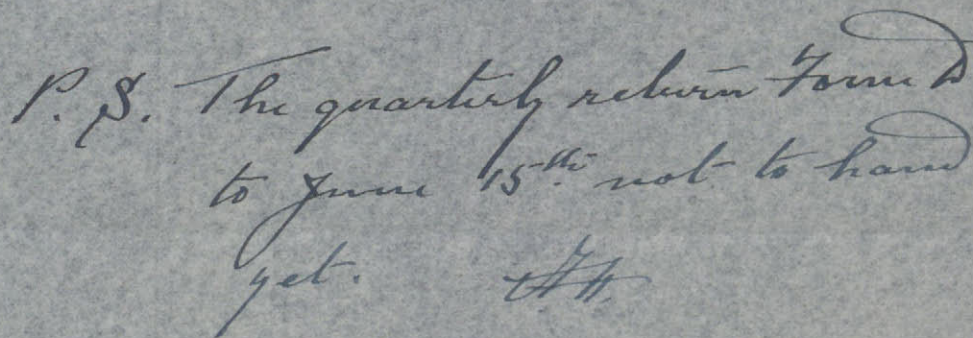 P. S. The quarterly return Form D
to June 15th not to hand
yet.